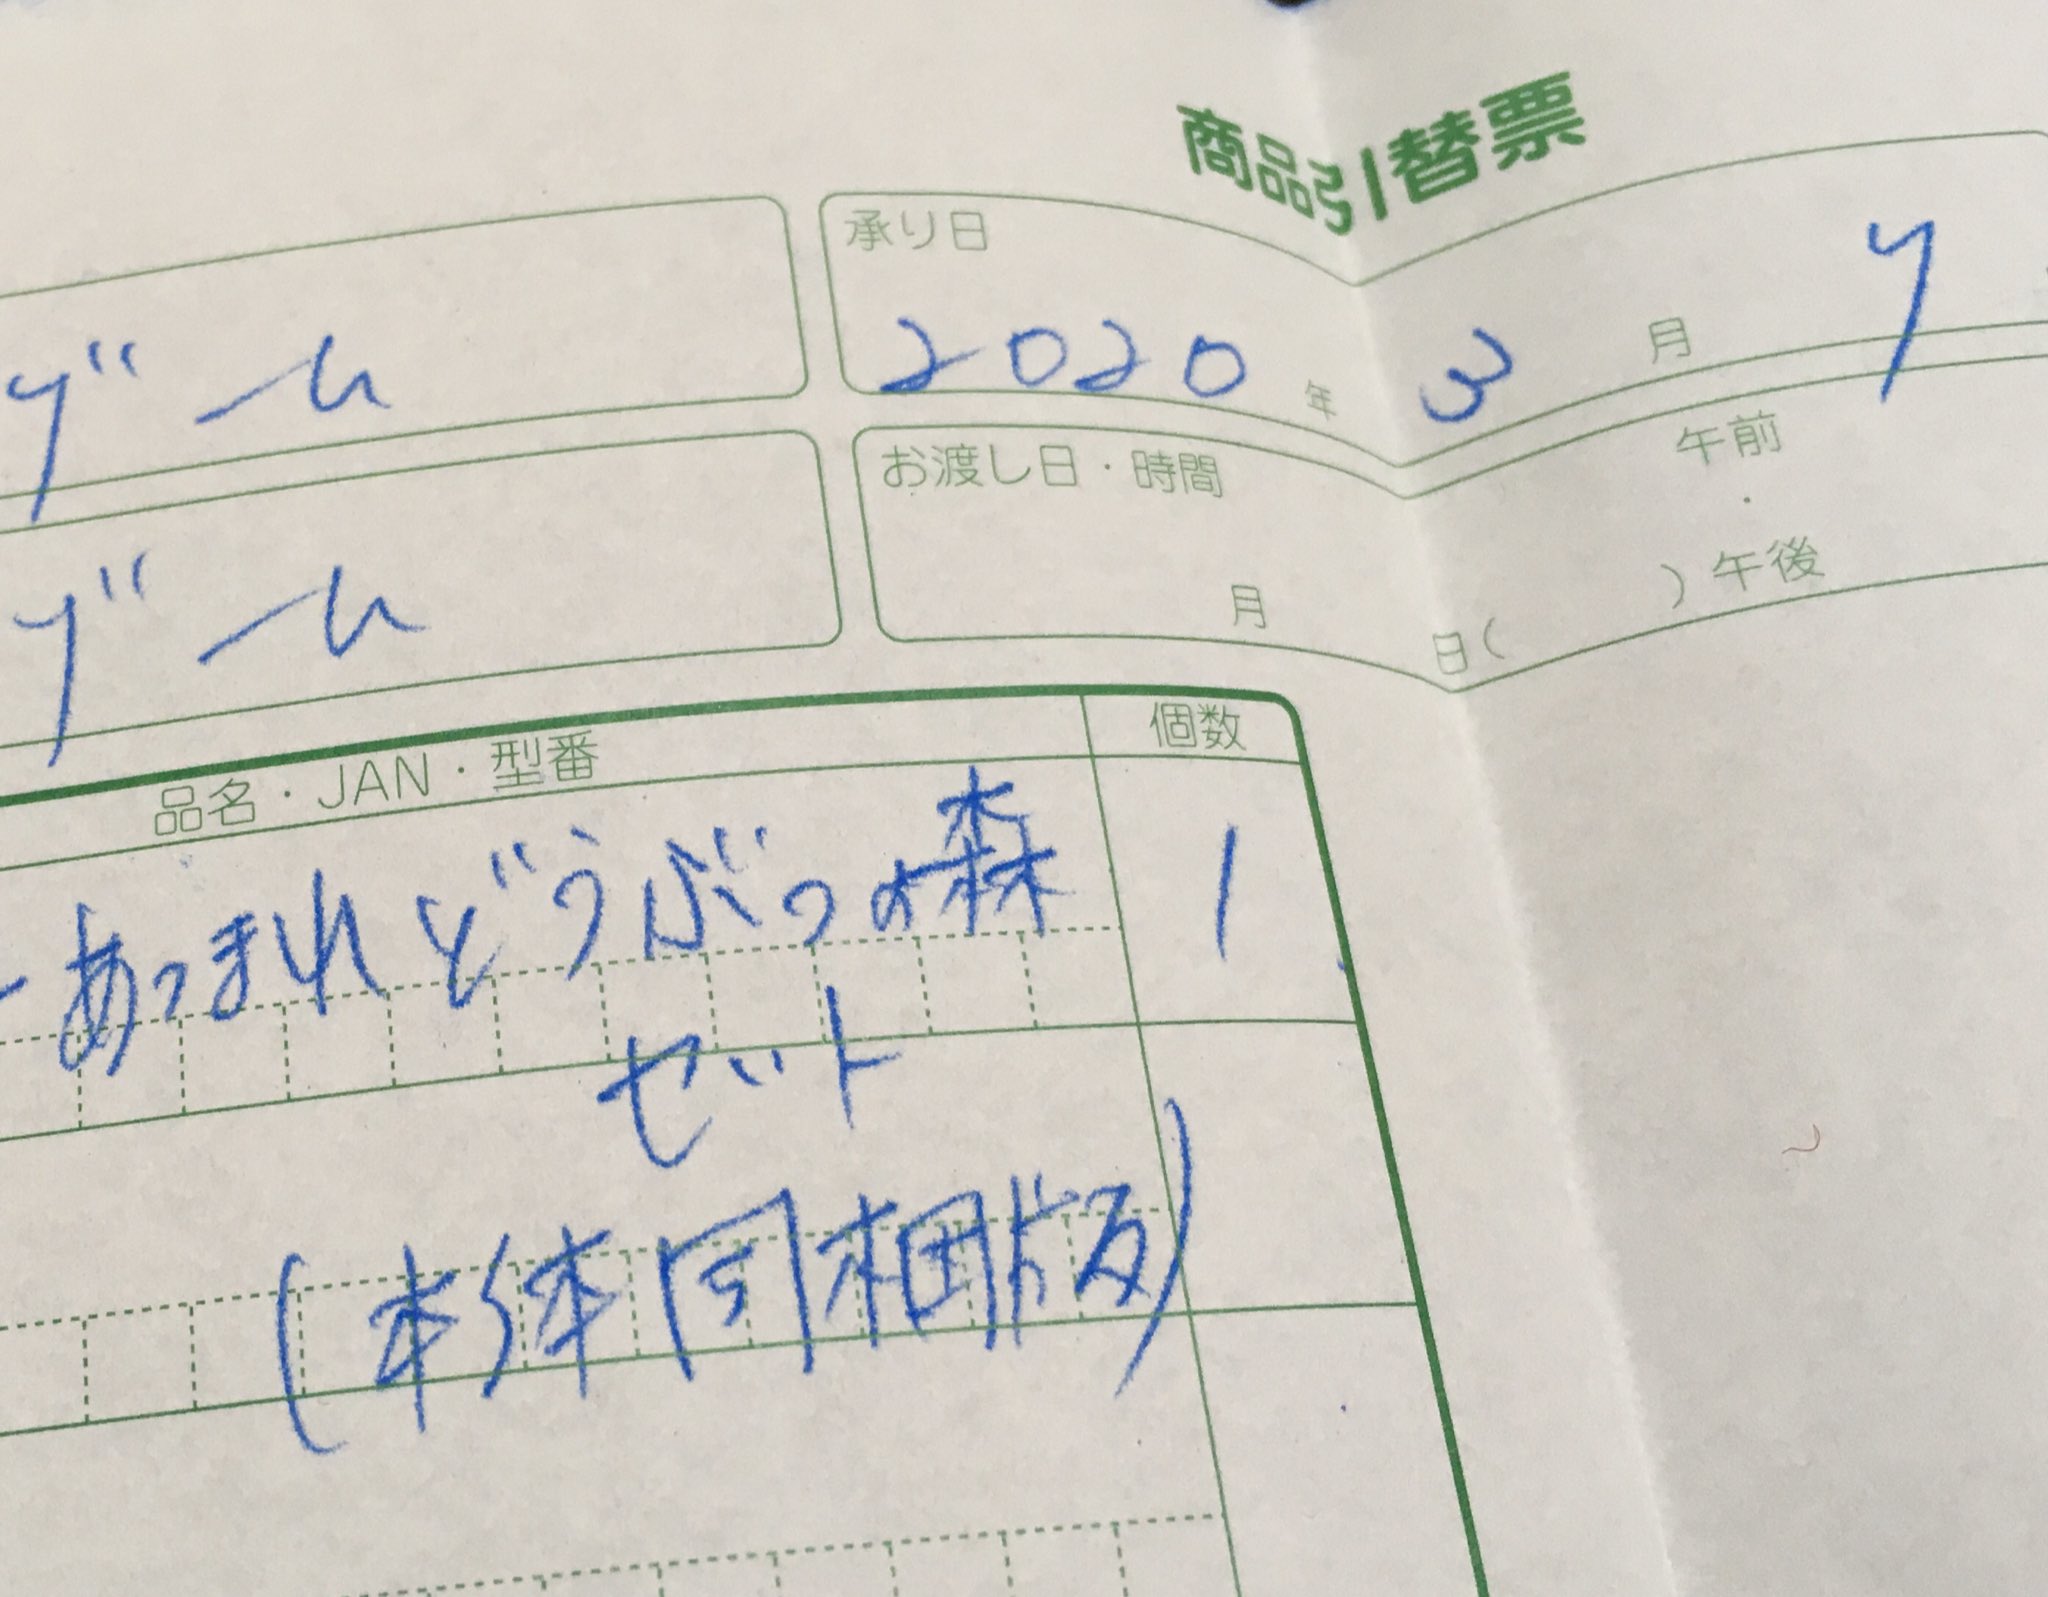 商品引替票
承り日
2020年3月7
ゲーム
お渡し日・時間
午前・午後
月 日( )
ゲーム
品名・JAN・型番 個数
あつまれどうぶつの森 1
セット
(本体同梱版)